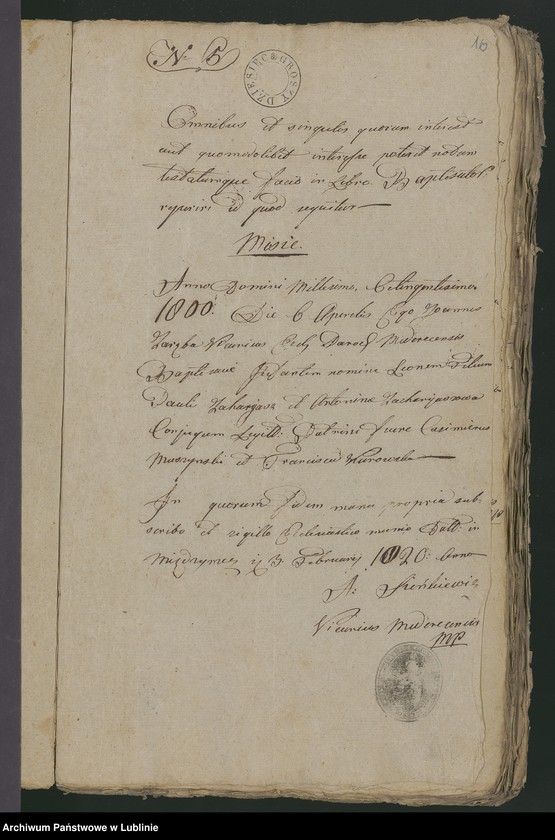 No 5
16
DZIESIĘC GROSZY
Omnibus et singulis quorum interest
aut quomodolibet interesse poterit notum
testatumque facio in Libro Baptisator:
reperiri id quod sequitur
Misie.
Anno Domini Millesimo, Octingentesimo
1800. Die 6 Aprilis Ego Joannes
Zaręba Vicarius Eccl: Paroch: Mederecensis
Baptisavi Infantem nomine Leonem Filium
Pauli Zaharjasz et Antonina Zacharjaszowa
Conjugum Legitt: Patrini fuere Casimierus
Muszynski et Francisca Kurowska
In quorum fidem manu propria sub-
scribo et sigillo Ecclesiastico munio Datt: in
3 Februarij 1820: Anno
A: Sieńkiewicz
Vicarius Mederecensis
mp
Archiwum Państwowe w Lublinie